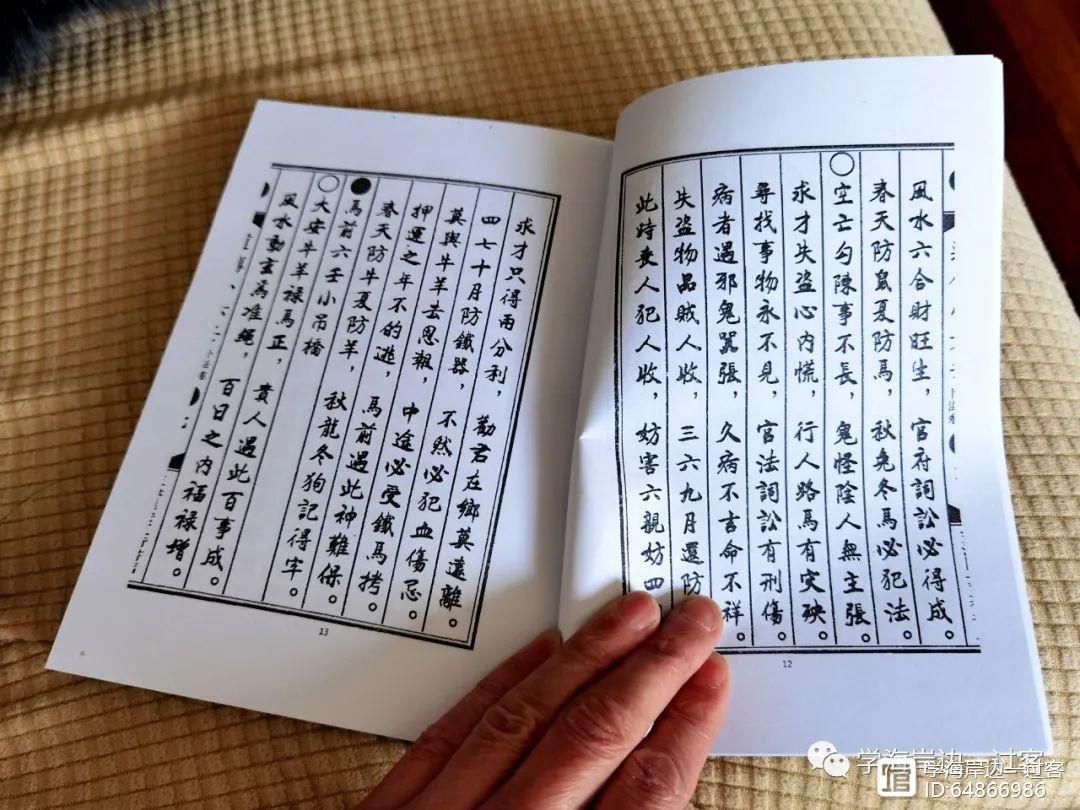 風水六合財旺生，官府詞訟必得成。
春天防鼠夏防馬，秋兔冬馬必犯法。
空亡勾陳事不長，鬼怪陰人無主張。
求才失盜心內慌，行人路馬有灾殃。
尋找事物永不見，官法詞訟有刑傷。
病者遇邪鬼嚣張，久病不吉命不祥。
失盜物品賊人收，三六九月還防
此時丧人犯人收，妨害六親妨四
12
求才只得兩分利，勸君在鄉莫遠離。
四七十月防鐵器，不然必犯血傷忌。
莫與牛羊去恩報，中途必受鐵馬拷。
押運之年不的逃，馬前遇此神難保。
春天防牛夏防羊，秋龍冬狗記得牢。
馬前六壬小吊橋
大安牛羊祿馬正，貴人遇此百事成。
風水動言為准繩，百日之內福祿增。
卜法卷
13
学海岸边一过客
学海岸边一过客
ID:64866986